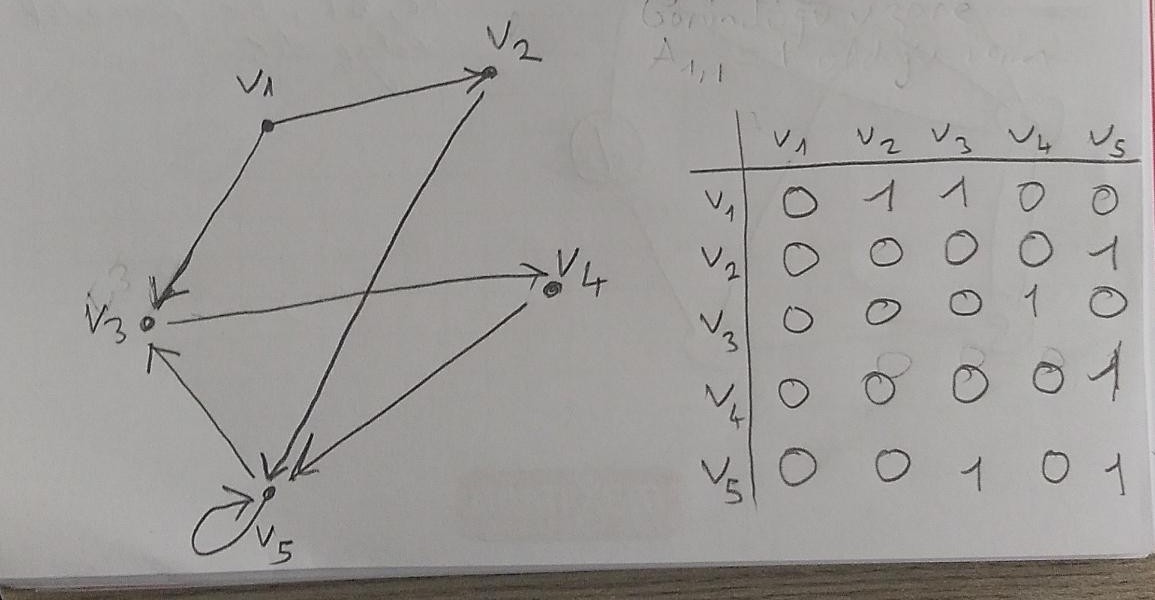 v1
v2
v3
v4
v5
v1 v2 v3 v4 v5
v1 0 1 1 0 0
v2 0 0 0 0 1
v3 0 0 0 1 0
v4 0 0 0 0 1
v5 0 0 1 0 1